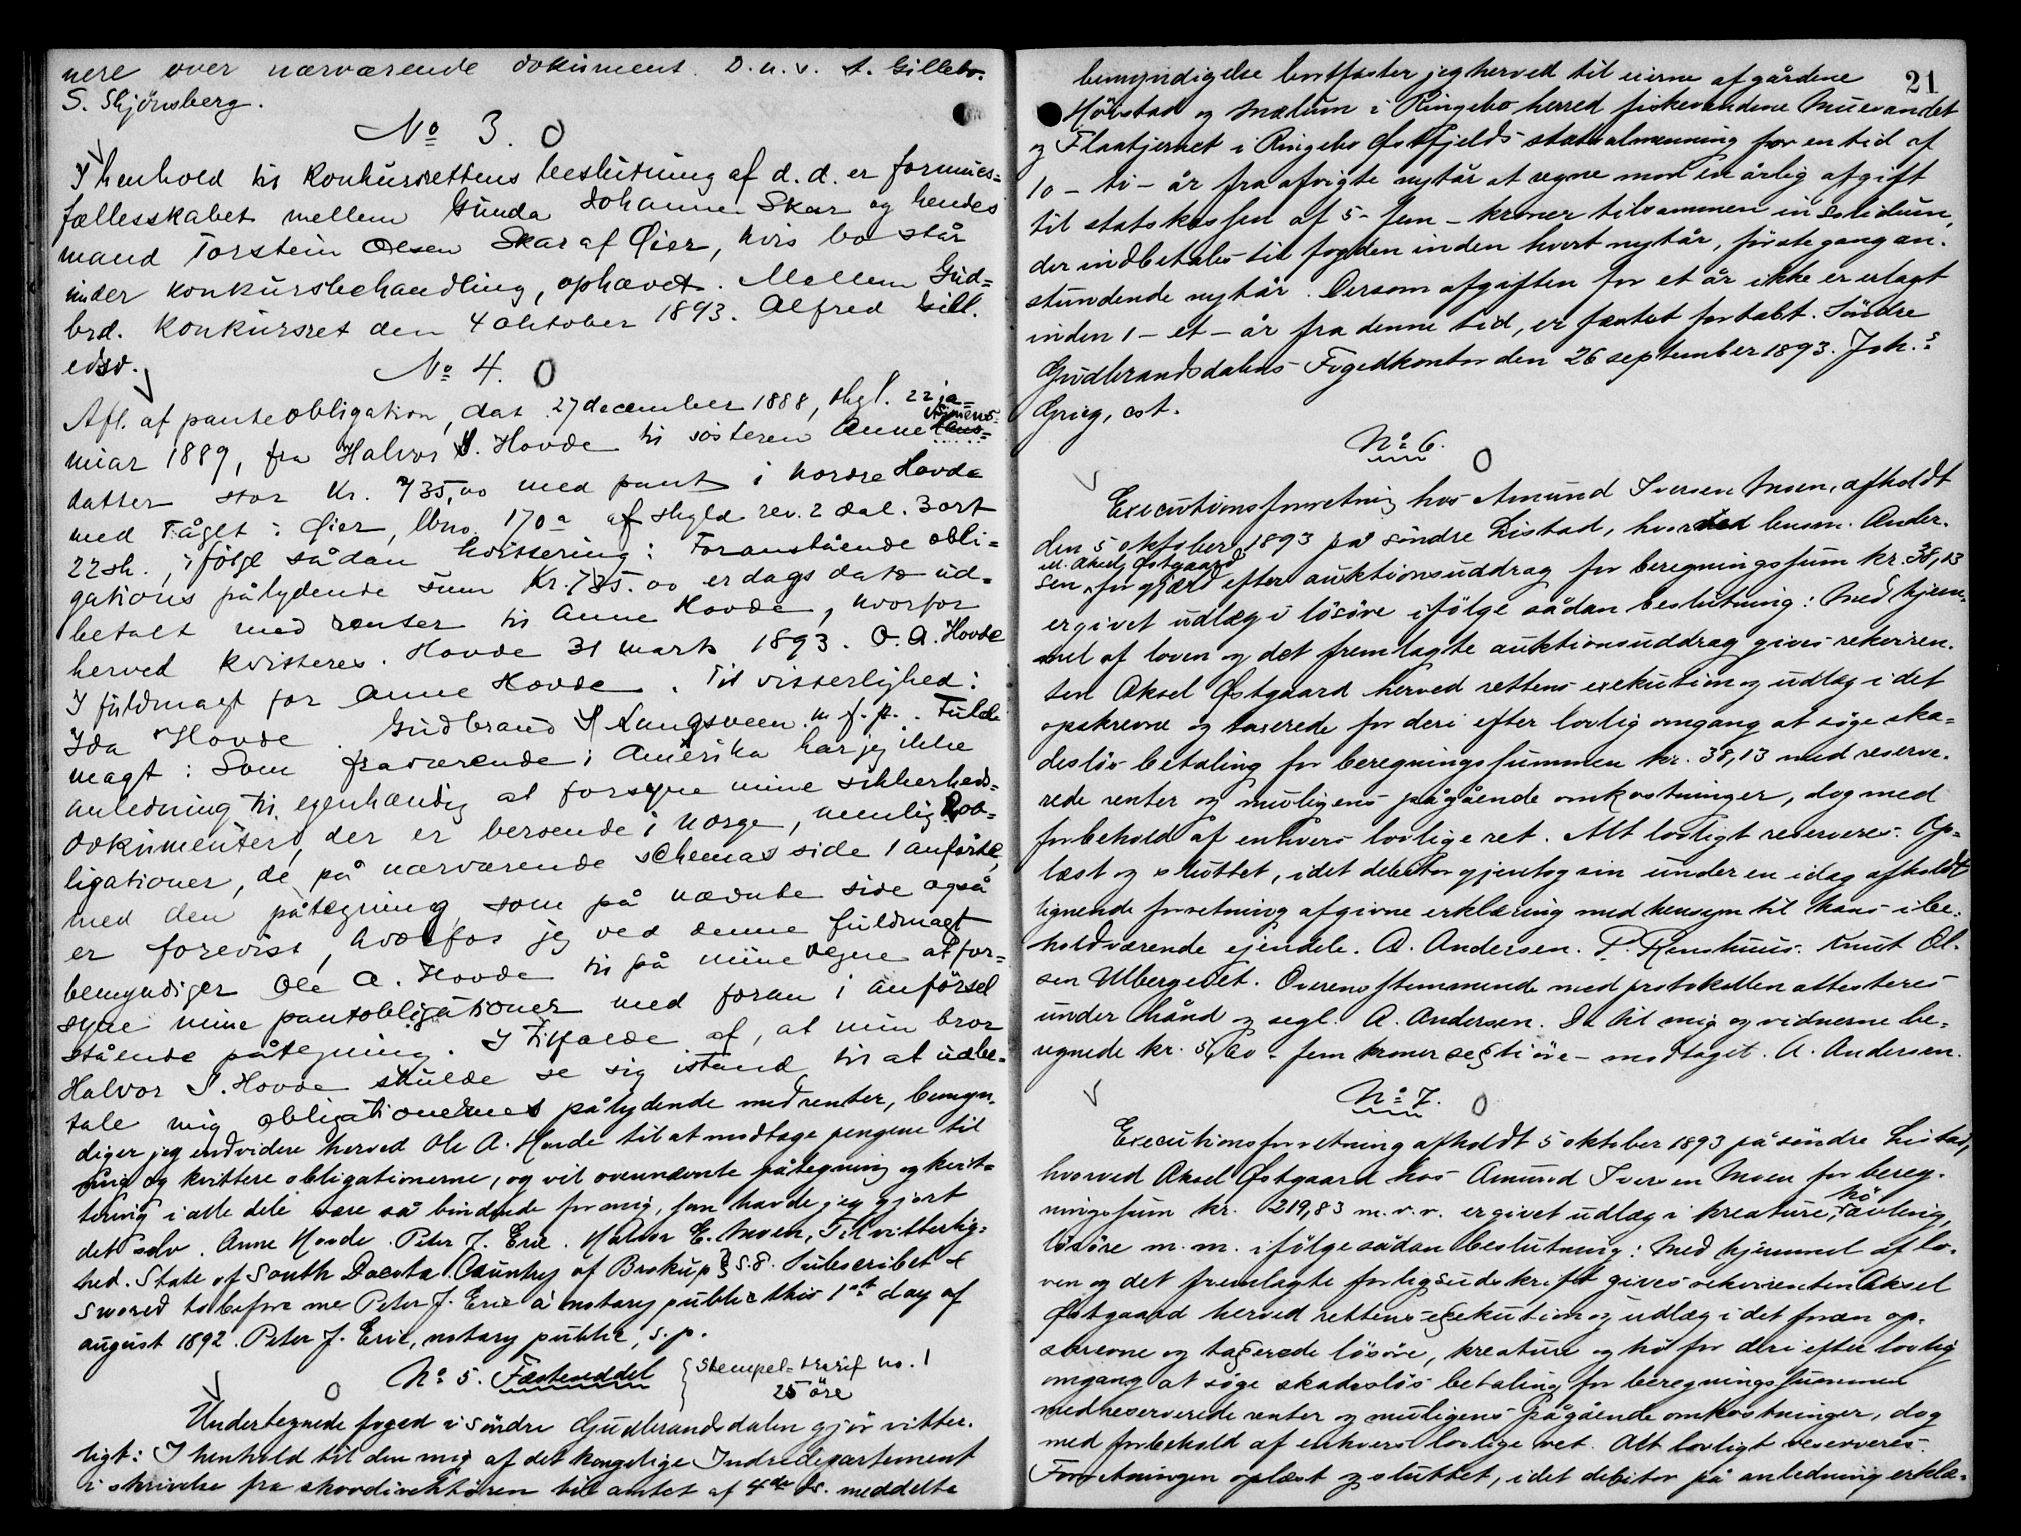 nere over nærværende dokument. D.u.s. A. Gillebo.
S. Skjönsberg.
No 3. O
I henhold til Konkursrettens beslutning af d.d. er formues=
fællesskabet mellem Gunda Johanne Skar og hendes
mand Torstein Olsen Skar af Öier, hvis bo står
under konkursbehandling, ophævet. Mellem Gud=
brd. Konkursret den 4 oktober 1893. Alfred Sill.
edsv.
No 4. O
Afl. af panteobligation, dat. 27 december 1888, thgl. 22 ja=
nuar 1889, fra Halvor S. Hovde til søsteren Anne
datter stor Kr. 735,00 med pant i nordre Hovde
med Tåget i Öier, lbno. 170a af skyld rev. 2 dal. 3 ort
22 sk., ifölge sådan kvittering: Foranstående obli=
gations pålydende sum Kr. 735.00 er dags dato ud=
betalt med renter til Anne Hovde, hvorfor
herved kvitteres. Hovde 31 marts 1893. O. A. Hovde
I fuldmagt for Anne Hovde. Til vitterlighed:
Ida Hovde. Gudbrand S Langsveen. m.f.p. Fuld=
magt: Som fraværende i Amerika har jeg ikke
anledning til egenhændig at forsyne mine sikkerheds=
dokumenter, der er beroende i Norge, nemlig 2 ob=
ligationer, de på nærværende schemas side 1 anförte,
med den påtegning som på nævnte side også
er forevist, hvorfor jeg ved denne fuldmagt
bemyndiger Ole A. Hovde til på mine vegne at for=
syne mine pantobligationer med foran i anförsel
stående påtegning. I Tilfælde af, at min bror
Halvor S. Hovde skulde se sig istand til at udbe=
tale mig obligationernes pålydende med renter, bemyn=
diger jeg endvidere herved Ole A. Hovde til at modtage pengene til
mig og kvittere obligationerne, og vil ovennævnte påtegning og kvit=
tering i alle dele være så bindende for mig, som havde jeg gjort
det selv. Anne Hovde. Peter J. Erie. Halvor E. Moen, Til vitterlig=
hed. State of South Dacota. Country of Brokup } S.S. Subscribet &
swored to before me Peter J. Erie a notary public this 1st day of
august 1892. Peter J. Erie, notary public, s.p.
No 5. Fæsteseddel { Stempel=tarif no. 1
O 25 öre
Undertegnede foged i söndre Gudbrandsdalen gjör vitter=
ligt: I henhold til den mig af det kongelige Indredepartement
i skrivelse fra skovdirektören til amtet af 4de ds. meddelte
21
bemyndigelse bortfæster jeg herved til eierne af gårdene
Hövstad og Mælum i Ringebo herred fiskevandene Muvandet
og Flaatjernet i Ringebo Østfjelds statsalmenning for en tid af
10 - ti - år fra afvigte nytår at regne mod en årlig afgift
til statskassen af 5 - fem - kroner tilsammen in solidum,
der indbetales til fogden inden hvert nytår, förste gang an=
stundende nytår. Dersom afgiften for et år ikke er erlagt
inden 1 - et - år fra denne tid, er fæstet fortabt. Söndre
Gudbrandsdalens Fogedkontor den 26 september 1893. Joh.s
Grieg, cst.
No 6. O
Executionsforretning hos Amund Iversen Moen, afholdt
den 5 oktober 1893 på söndre Listad, hvorved lensm. Ander=
sen for Aksel Østgaard efter auktionsuddrag for beregningssum kr. 38,13
er givet udlæg i lösöre ifölge sådan beslutning: Med hjem=
mel af loven og det fremlagte auktionsuddrag gives rekviren=
ten Aksel Østgaard herved rettens exekution og udlæg i det
opskrevne og taxerede for deri efter lovlig omgang at söge ska=
deslös betaling for beregningssummen kr. 38,13 med reserve=
rede renter og muligens pågående omkostninger, dog med
forbehold af enhvers lovlige ret. Alt lovligt reserveres. Op=
læst og sluttet, idet debitor gjentog sin under en idag afholdt
lignende forretning afgivne erklæring med hensyn til hans i be=
holdværende ejendele. A. Andersen. P. Rønshuus. Knut Ol=
sen Ulbergedet. Overensstemmende med protokollen attesteres
under hånd og segl. A. Andersen. De til mig og vidnerne be=
regnede kr. 5,60 - fem kroner sexti öre - modtaget. A. Andersen.
No 7. O
Executionsforretning afholdt 5 oktober 1893 på söndre Listad,
hvorved Aksel Østgaard hos Amund Iversen Moen for bereg=
ningssum kr. 219,83 m.v.r. er givet udlæg i kreature, hö avling,
lösöre m.m. ifölge sådan beslutning: Med hjemmel af lo=
ven og det fremlagte forligsudskrift gives rekvirenten Aksel
Østgaard herved rettens exekution og udlæg i det foran op=
skrevne og taxerede lösöre, kreature og hö for deri efter lovlig
omgang at söge skadeslös betaling for beregningssummen
med reserverede renter og muligens pågående omkostninger, dog
med forbehold af enhvers lovlige ret. Alt lovligt reserveres.
Forretningen oplæst og sluttet, idet debitor på anledning erklæ=